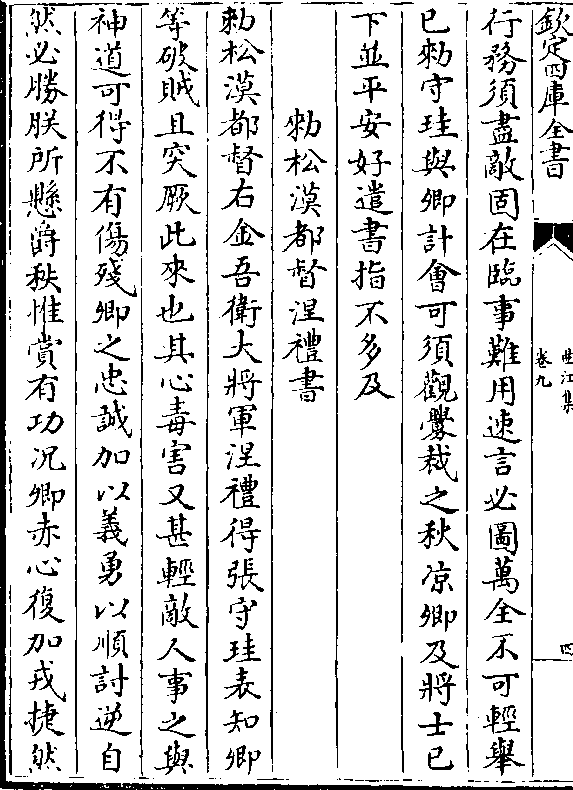 欽定四庫全書
曲江集
卷九
四
行務須盡敵固在臨事難用速言必圖萬全不可輕舉
已勅守珪與卿計會可須觀釁裁之秋涼卿及將士已
下並平安好遣書指不多及
勅松漠都督涅禮書
勅松漠都督右金吾衛大將軍涅禮得張守珪表知卿
等破賊且突厥此來也其心毒害又甚輕敵人事之與
神道可得不有傷殘卿之忠誠加以義勇以順討逆自
然必勝朕所懸爵秩惟賞有功况卿赤心復加戎捷然